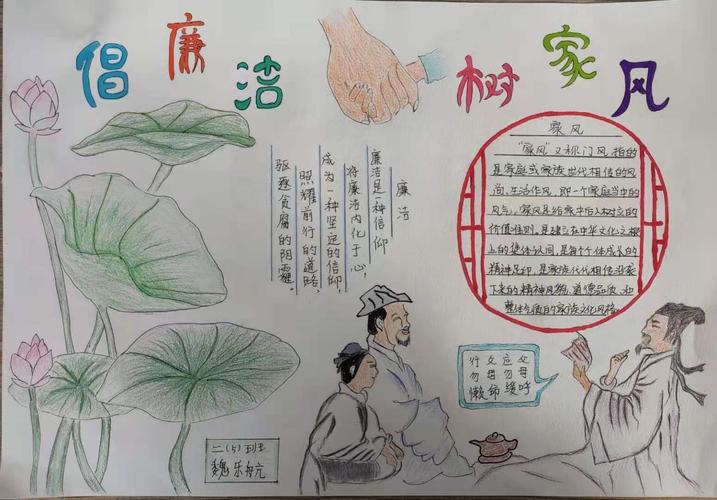 倡廉洁 树家风
廉洁
廉洁是一种信仰
将廉洁内化于心,
成为一种坚定的信仰,
照耀前行的道路,
驱逐贪腐的阴霾。
家风
"家风"又称门风,指的
是家庭或家族世代相传的风
尚、生活作风。即一个家庭当中的
风气。家风是给家中后人树立的
价值准则,是建立在中华文化之根
上的集体认同,是每个个体成长的
精神足印,是家族代代相传沿袭
下来的精神风貌、道德品质、和
整体气质的家族文化风格。
父母呼
应勿缓
父母命
行勿懒
二(5)班
魏乐航